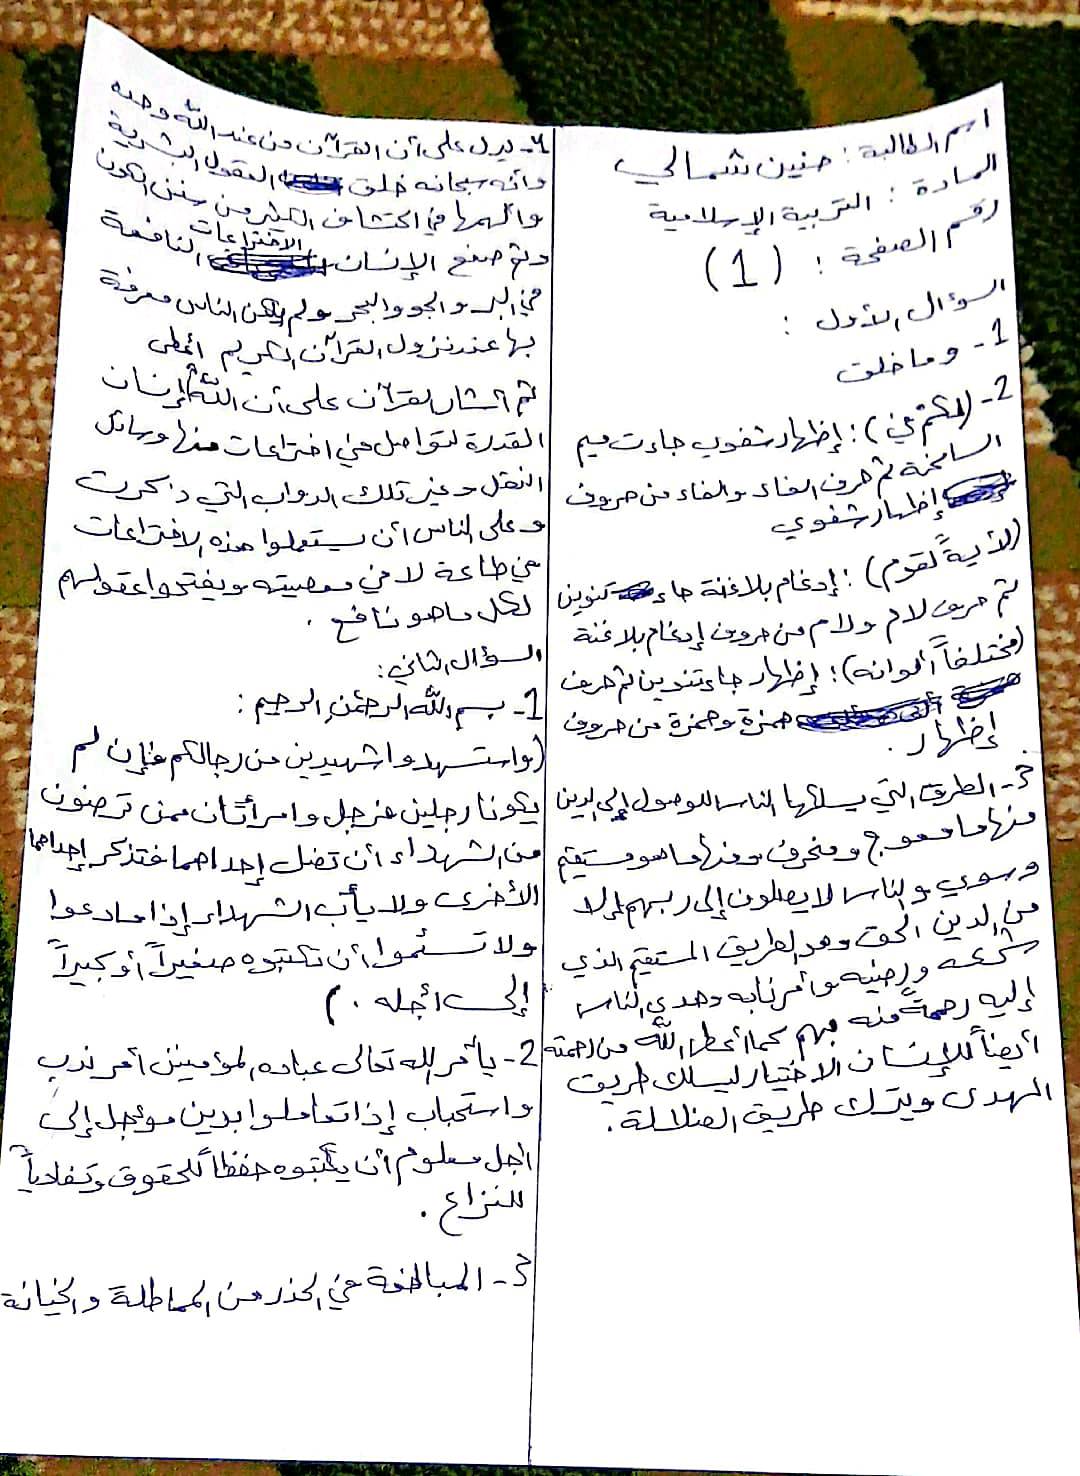 اسم الطالبة : حنين شمالي
المادة : التربية الإسلامية
رقم الصفحة : (1)
السؤال الأول :
1- وما خلق
2- (لكم في) : إظهار شفوي جاءت ميم
الساكنة ثم حرف الفاء والفاء من حروف
إظهار شفوي
(لأيةً لقوم) : إدغام بلاغنة جاء تنوين
ثم حرف لام ولام من حروف إدغام بلاغنة
(مختلفاً ألوانه) : إظهار جاء تنوين ثم حرف
همزة وهمزة من حروف
إظهار .
3- الطرق التي يسلكها الناس للوصول إلى الدين
منها ما معوج ومنحرف ومنها ما هو مستقيم
وسوي والناس لا يصلون إلى ربهم إلا
من الدين الحق وهو الطريق المستقيم الذي
شرعه ورضيه وأمرنا به وهدى الناس
إليه رحمةً منه بهم كما أعطى الله من رحمته
أيضاً للإنسان الاختيار ليسلك طريق
الهدى ويترك طريق الضلالة .
4- يدل على أن القرآن من عند الله وحده
وانه سبحانه خلق العقول البشرية
وألهمها في اكتشاف الكثير من سنن الكون
وتم صنع الإنسان الاختراعات النافعة
في البر والجو والبحر ولم يكن الناس معرفة
بها عند نزول القرآن الكريم
ثم أشار القرآن على أن الله أعطى إنسان
القدرة لتواصل في اختراعات منها وسائل
النقل وغير تلك الدواب التي ذكرت
وعلى الناس أن يستعملوا هذه الاختراعات
في طاعة لا في معصيته ويفتحوا عقولهم
لكل ما هو نافع .
السؤال الثاني :
1- بسم الله الرحمن الرحيم :
(واستشهدوا شهيدين من رجالكم فإن لم
يكونا رجلين فرجل وامرأتان ممن ترضون
من الشهداء أن تضل إحداهما فتذكر إحداهما
الأخرى ولا يأب الشهداء إذا ما دعوا
ولا تسئموا أن تكتبوه صغيراً أو كبيراً
إلى أجله .)
2- يأمر الله تعالى عباده المؤمنين أمر ندب
واستحباب إذا تعاملوا بدين مؤجل إلى
أجل معلوم أن يكتبوه حفظاً للحقوق وتفادياً
للنزاع .
3- المبالغة في الحذر من المماطلة والخيانة